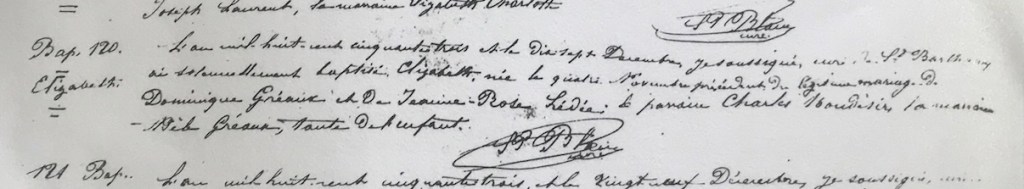 Joseph Laurent, la marraine Elizabeth Charlotte
Blain
curé
Bap. 120. L'an mil huit-cent cinquante trois et le dix sept Décembre, je soussigné, curé de St. Barthélemy
Elizabeth ai solennellement baptisé Elizabeth née le quatre Novembre précédent du légitime mariage de
Dominique Gréaux et De Jeanne-Rose Lédée: le parrain Charles Mondésir, la marraine
Gréaux, tante de l'enfant.
Blain
curé
121 Bap. L'an mil huit-cent cinquante trois, et le vingt Décembre, je soussigné,